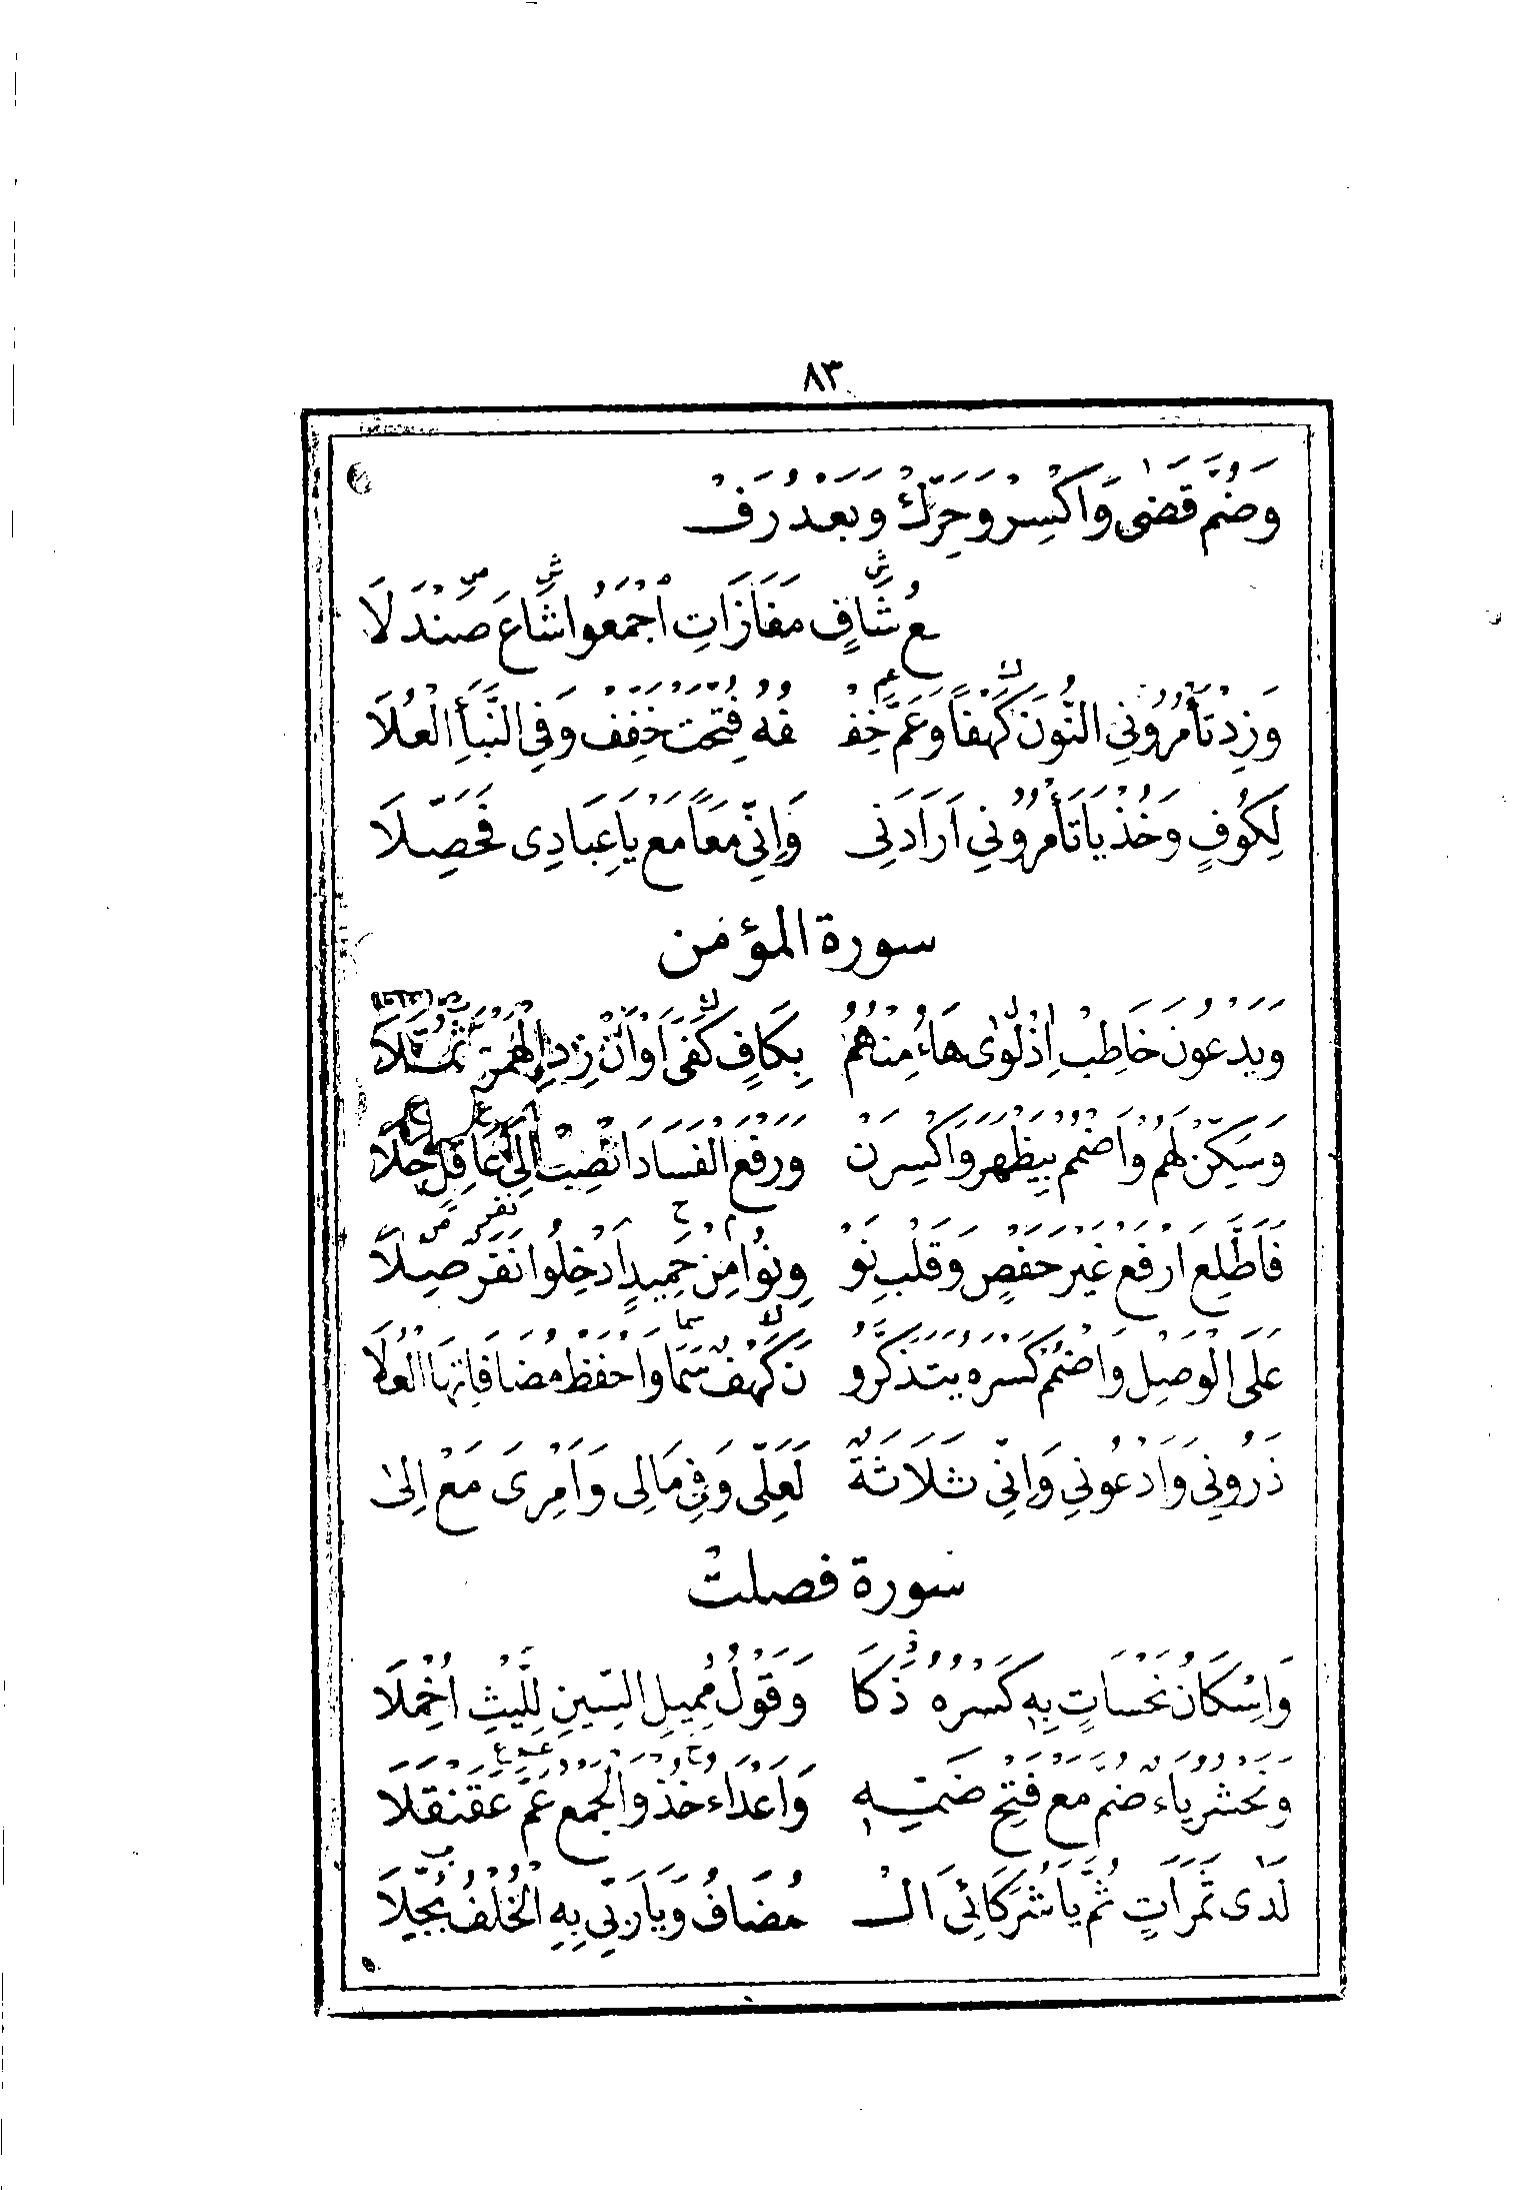 ٨٣
وَضُمَّ قَضٰى وَاكْسِرْ وَحَرِّكْ وَبَعْدُ رَفْ
عُ شَافٍ مَفَازَاتِ اجْمَعُوا شَاعَ صَنْدَلَا
وَزِدْ تَأْمُرُونِي النُّونَ كَهْفًا وَعَمَّ خِفْ فُهُ فُتِحَتْ خَفِّفْ وَفِي النَّبَأِ الْعُلَا
لِكُوفٍ وَخُذْ يَا تَأْمُرُونِي اَرَادَنِى وَاِنِّي مَعًا مَعْ يَا عِبَادِى فَحَصِّلَا
سورة المؤمن
وَيَدْعُونَ خَاطِبْ اِذْ لَوٰى هَاءُ مِنْهُمُ بِكَافٍ كَفٰى اَوْ اَنْ زِدِ الْهَمْزَ ثُمَّلَا
وَسَكِّنْ لَهُمْ وَاضْمُمْ بِيَظْهَرَ وَاكْسِرَنْ وَرَفْعَ الْفَسَادَ انْصِبْ اِلٰى عَاقِلٍ حَلَا
فَاَطَّلِعَ ارْفَعْ غَيْرَ حَفْصٍ وَقَلْبِ نَوْ وِنُوا مِنْ حَمِيدٍ اَدْخِلُوا نَفَرٌ صِلَا
عَلَى الْوَصْلِ وَاضْمُمْ كَسْرَهُ يَتَذَكَّرُو نَ كَهْفٌ سَمَا وَاحْفَظْ مُضَافَاتِهَا الْعُلَا
ذَرُونِي وَادْعُونِي وَاِنِّي ثَلَاثَةٌ لَعَلِّى وَفِي مَالِى وَاَمْرِىَ مَعْ اِلٰى
سورة فصلت
وَاِسْكَانُ نَحْسَاتٍ بِهِ كَسْرُهُ ذَكَا وَقَوْلُ مُمِيلِ السِّينِ لِلَّيْثِ اُخْمِلَا
وَنَحْشُرُ يَاءٌ ضُمَّ مَعْ فَتْحِ ضَمِّهِ وَاَعْدَاءُ خُذْ وَالْجَمْعُ عَمَّ عَقَنْقَلَا
لَدٰى ثَمَرَاتٍ ثُمَّ يَا شُرَكَائِىَ الْـ مُضَافُ وَيَا رَبِّي بِهِ الْخُلْفُ بُجِّلَا